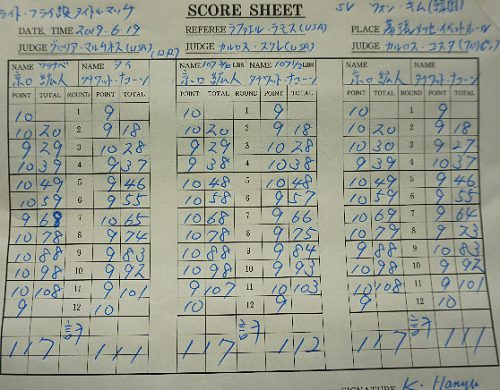 SCORE SHEET
ライト・フライ級タイトルマッチ
SV フォン・キム (韓国)
DATE, TIME 2019.6.19 REFEREE ラファエル・ラモス(USA) PLACE 幕張メッセイベントホール
JUDGE JUDGE カルロス・スクレ(USA) JUDGE カルロス・コスタ(フィリピン)
NAME NAME タイ NAME 107 3/4 LBS NAME 107 1/2 LBS NAME NAME
京口紘人 タナワット・ナコーン 京口紘人 タナワット・ナコーン 京口紘人 タナワット・ナコーン
POINT TOTAL ROUND POINT TOTAL POINT TOTAL ROUND POINT TOTAL POINT TOTAL ROUND POINT TOTAL
10 1 9 10 1 9 10 1 9
10 20 2 9 18 10 20 2 9 18 10 20 2 9 18
9 29 3 10 28 9 29 3 10 28 10 30 3 9 27
10 39 4 9 37 9 38 4 10 38 9 39 4 10 37
10 49 5 9 46 10 48 5 10 48 10 49 5 9 46
10 59 6 9 55 10 58 6 9 57 10 59 6 9 55
9 68 7 10 65 10 68 7 9 66 10 69 7 9 64
10 78 8 9 74 10 78 8 9 75 10 79 8 9 73
10 88 9 9 83 10 88 9 9 84 9 88 9 10 83
10 98 10 9 92 10 98 10 9 93 10 98 10 9 92
10 108 11 9 101 9 107 11 10 103 10 108 11 9 101
9 12 10 10 12 9 9 12 10
117 計 111 117 計 112 117 計 111
SIGNATURE K. Hanyu